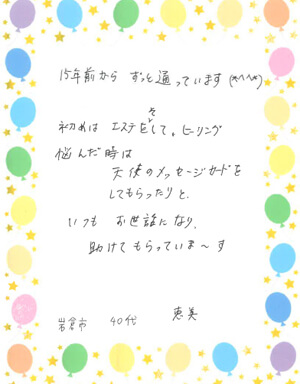 15年前から ずっと通っています (*^^*)
初めは エステをして。ヒーリング
悩んだ時は
天使のメッセージカードを
してもらったりと、
いつも お世話になり、
助けて もらっていま〜す
岩倉市 40代 恵美